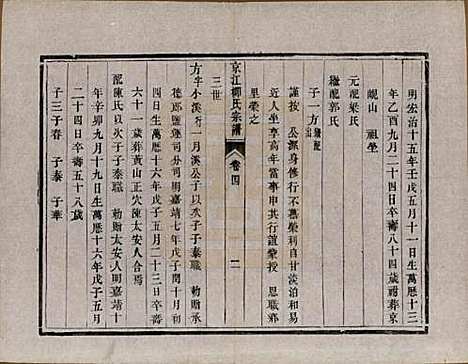 明宏治十五年壬戌五月十一日生萬厯十三
年乙酉九月二十四日卒壽八十四歲祔葬京
峴山 祖塋
元配梁氏
繼配郭氏
子一方 繼配出
謹按 公源身修行不慕榮利自甘淡泊和易
近人坐享高年當事申其行誼榮授 恩職鄉
里榮之
京江柳氏宗譜 卷四 二
三世
方 字小溪行一月溪公子以次子子泰職 勑贈承
德郎鹽運司分司明嘉靖七年戊子閏十月初
四日生萬厯十六年戊子五月二十三日卒壽
六十一歲葬黃山正穴陳太安人合焉
配陳氏以次子子泰職 勑贈太安人明嘉靖十
年辛卯九月十九日生萬厯十六年戊子五月
二十四日卒壽五十八歲
子三子春 子泰 子華